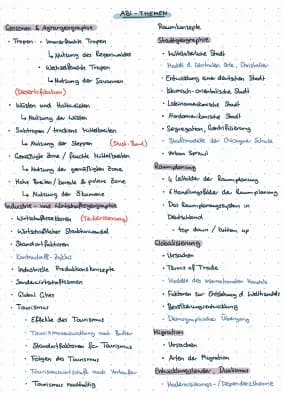 ABI-THEMEN
Geozonen & Agrargeographie
• Tropen • immerfeuchte Tropen
↳ Nutzung des Regenwaldes
• Wechselfeuchte Tropen
↳ Nutzung der Savannen
(Desertifikation)
• Wüsten und Halbwüsten
↳ Nutzung der Wüsten
• Subtropen / trockene Mittelbreiten
↳ Nutzung der Steppen (Dust-Bowl)
• Gemäßigte Zone / feuchte Mittelbreiten
↳ Nutzung der gemäßigten Zone
• Hohe Breiten / boreale & polare Zone
↳ Nutzung der
Industrie- und Wirtschaftsgeographie
• Wirtschaftssektoren (Tertiärisierung)
• Wirtschaftlicher Strukturwandel
• Standortfaktoren
• Kondratieff-Zyklus
• Industrielle Produktionskonzepte
• Sonderwirtschaftszonen
• Global Cities
• Tourismus
• Effekte des Tourismus
• Tourismusentwicklung nach Butler
• Standortfaktoren für Tourismus
• Folgen des Tourismus
• Tourismuswirtschaft nach Vorlaufer
• Tourismus nachhaltig
Raumkonzepte
Stadtgeographie
• Mittelalterliche Stadt
• Modell d. zentralen Orte, Christaller
• Entwicklung einer deutschen Stadt
• Islamisch-orientalische Stadt
• Lateinamerikanische Stadt
• Nordamerikanische Stadt
• Segregation, Gentrifizierung
• Stadtmodelle der Chicagoer Schule
• Urban Sprawl
Raumplanung
• 4 Leitbilder der Raumplanung
• 6 Handlungsfelder der Raumplanung
• Das Raumplanungssystem in
Deutschland
• top down / bottom up
Globalisierung
• Ursachen
• Terms of Trade
• Modelle des internationalen Handels
• Faktoren zur Entstehung d. Welthandels
• Bevölkerungsentwicklung
• Demographischer Übergang
Migration
• Ursachen
• Arten der Migration
Entwicklungsländer, Dualismus
• Modernisierungs-/Dependenztheorie